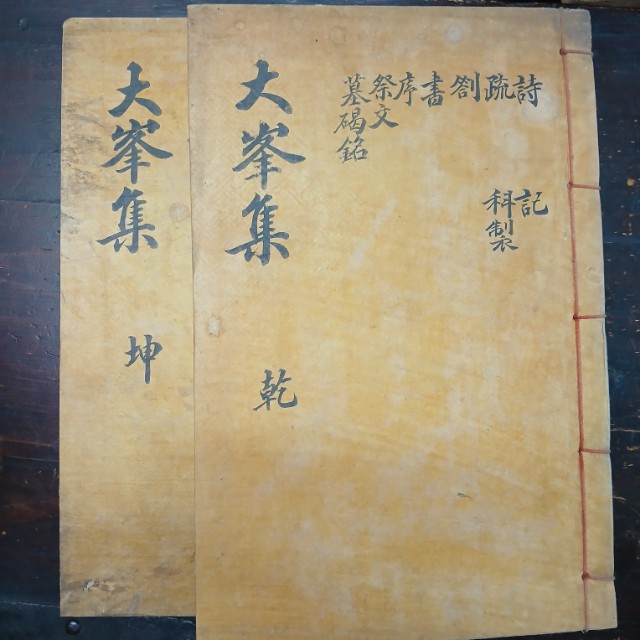 詩
記
疏
科製
劄
書
序
祭文
墓碣銘
大峯集
乾
大峯集
坤